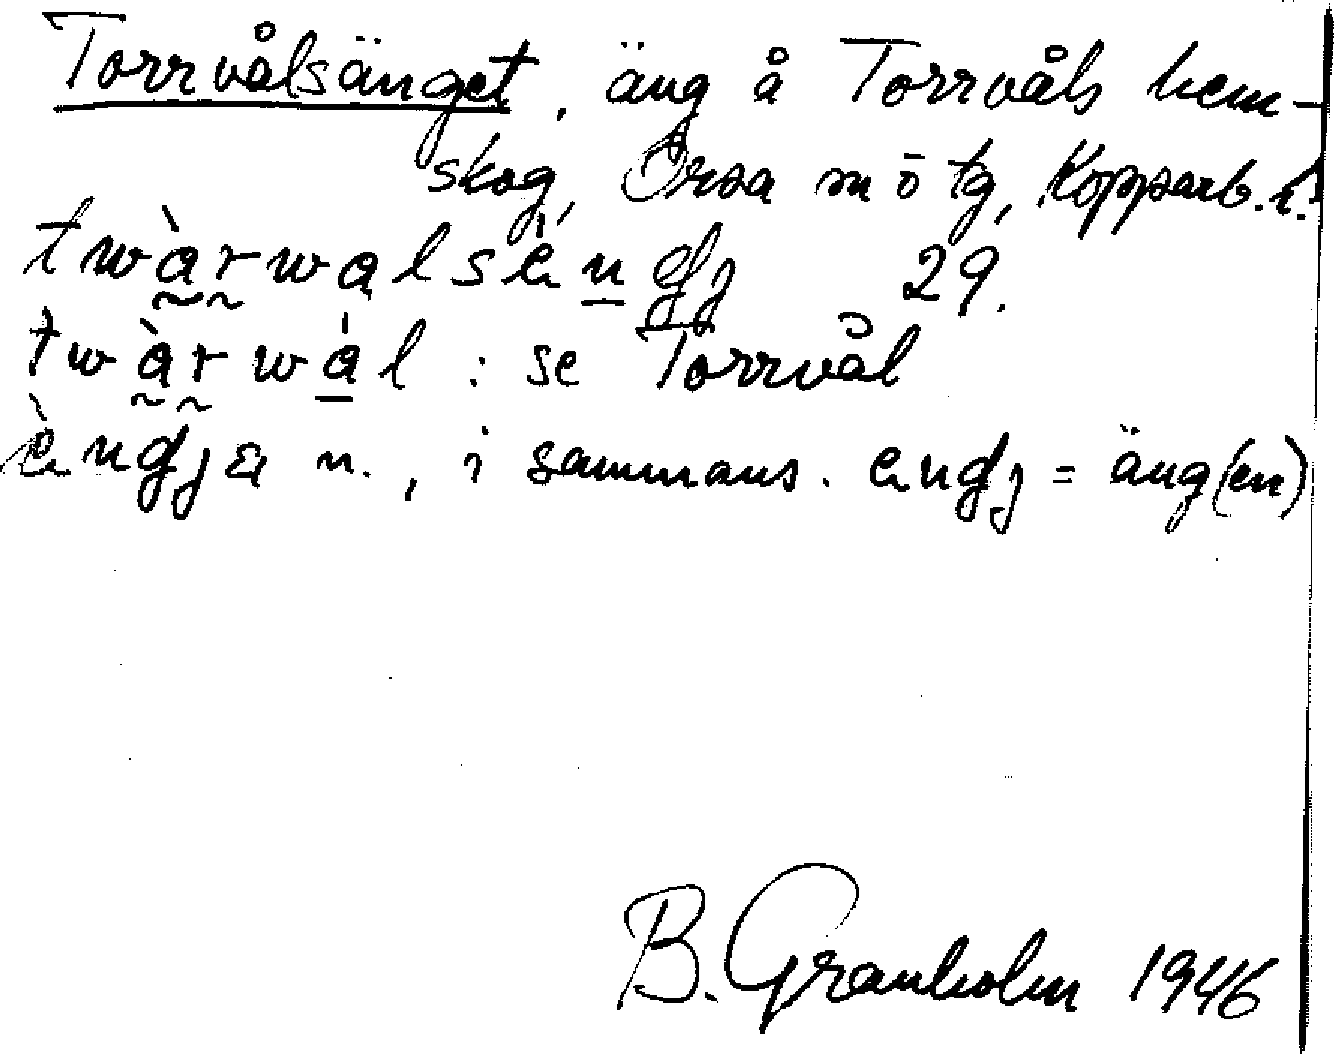 Torrvålsänget, äng å Torrvåls hem-
skog, Orsa sn ö tg, Kopparb. l.
twàrwalséngj 29.
twàrwál : se Torrvål
èngja n., i sammans. engj = äng(en)
B. Granholm 1946